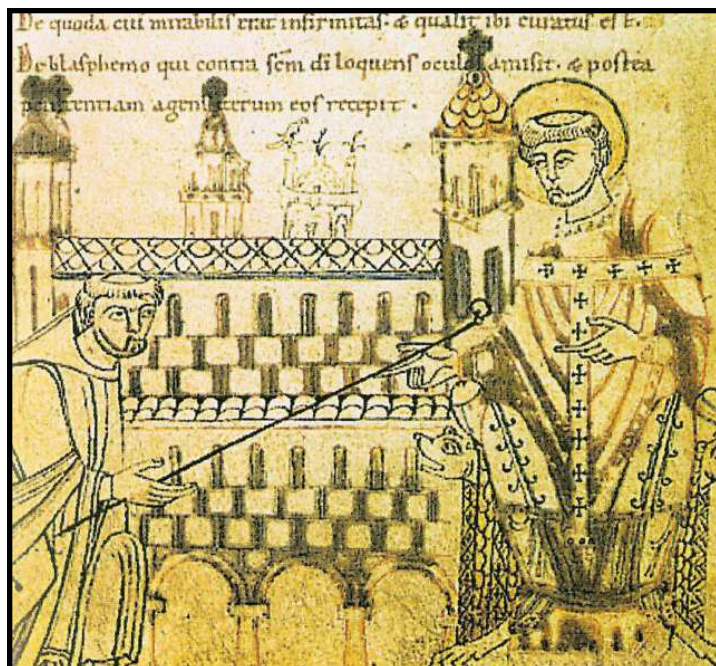 De quoda cui mirabilis erat infirmitas. & qualit ibi curatus est.
De blasphemo qui contra scm di loquens oculos amisit. & postea
penitentiam agens iterum eos recepit.